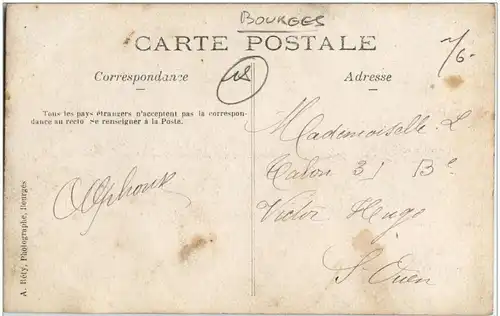 BOURGES
CARTE POSTALE
Correspondance
Adresse
Tous les pays étrangers n'acceptent pas la correspon-
dance au recto Se renseigner à la Poste.
Mademoiselle L
31 Bd
Victor Hugo
St Ouen
Alphonse
A. Réty, Photographe, Bourges